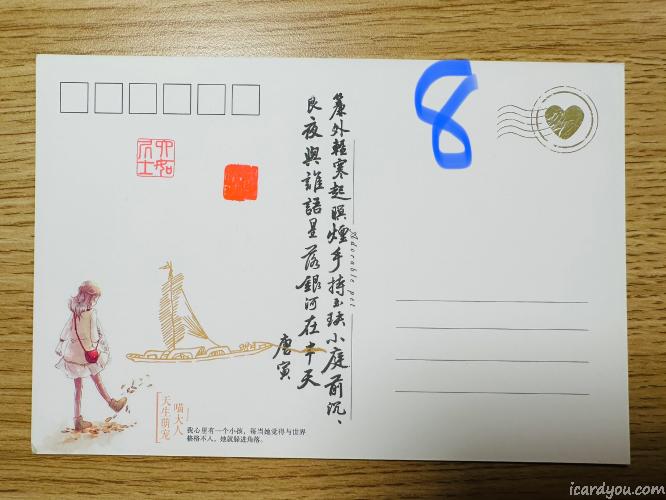 8
簾外輕寒起暝煙手持玉玦小庭前沉、
良夜與誰語星落銀河在半天
唐寅
六如
居士
Adorable pet
喵大人
天生萌宠
我心里有一个小孩，每当她觉得与世界
格格不入，她就躲进角落。
icardyou.com